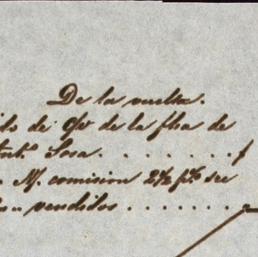 De la vuelta.
de de la fha de
Ant.º Sosa. . . . . . . f
M/. comision 2½ p%
vendidos . . . . . . . .